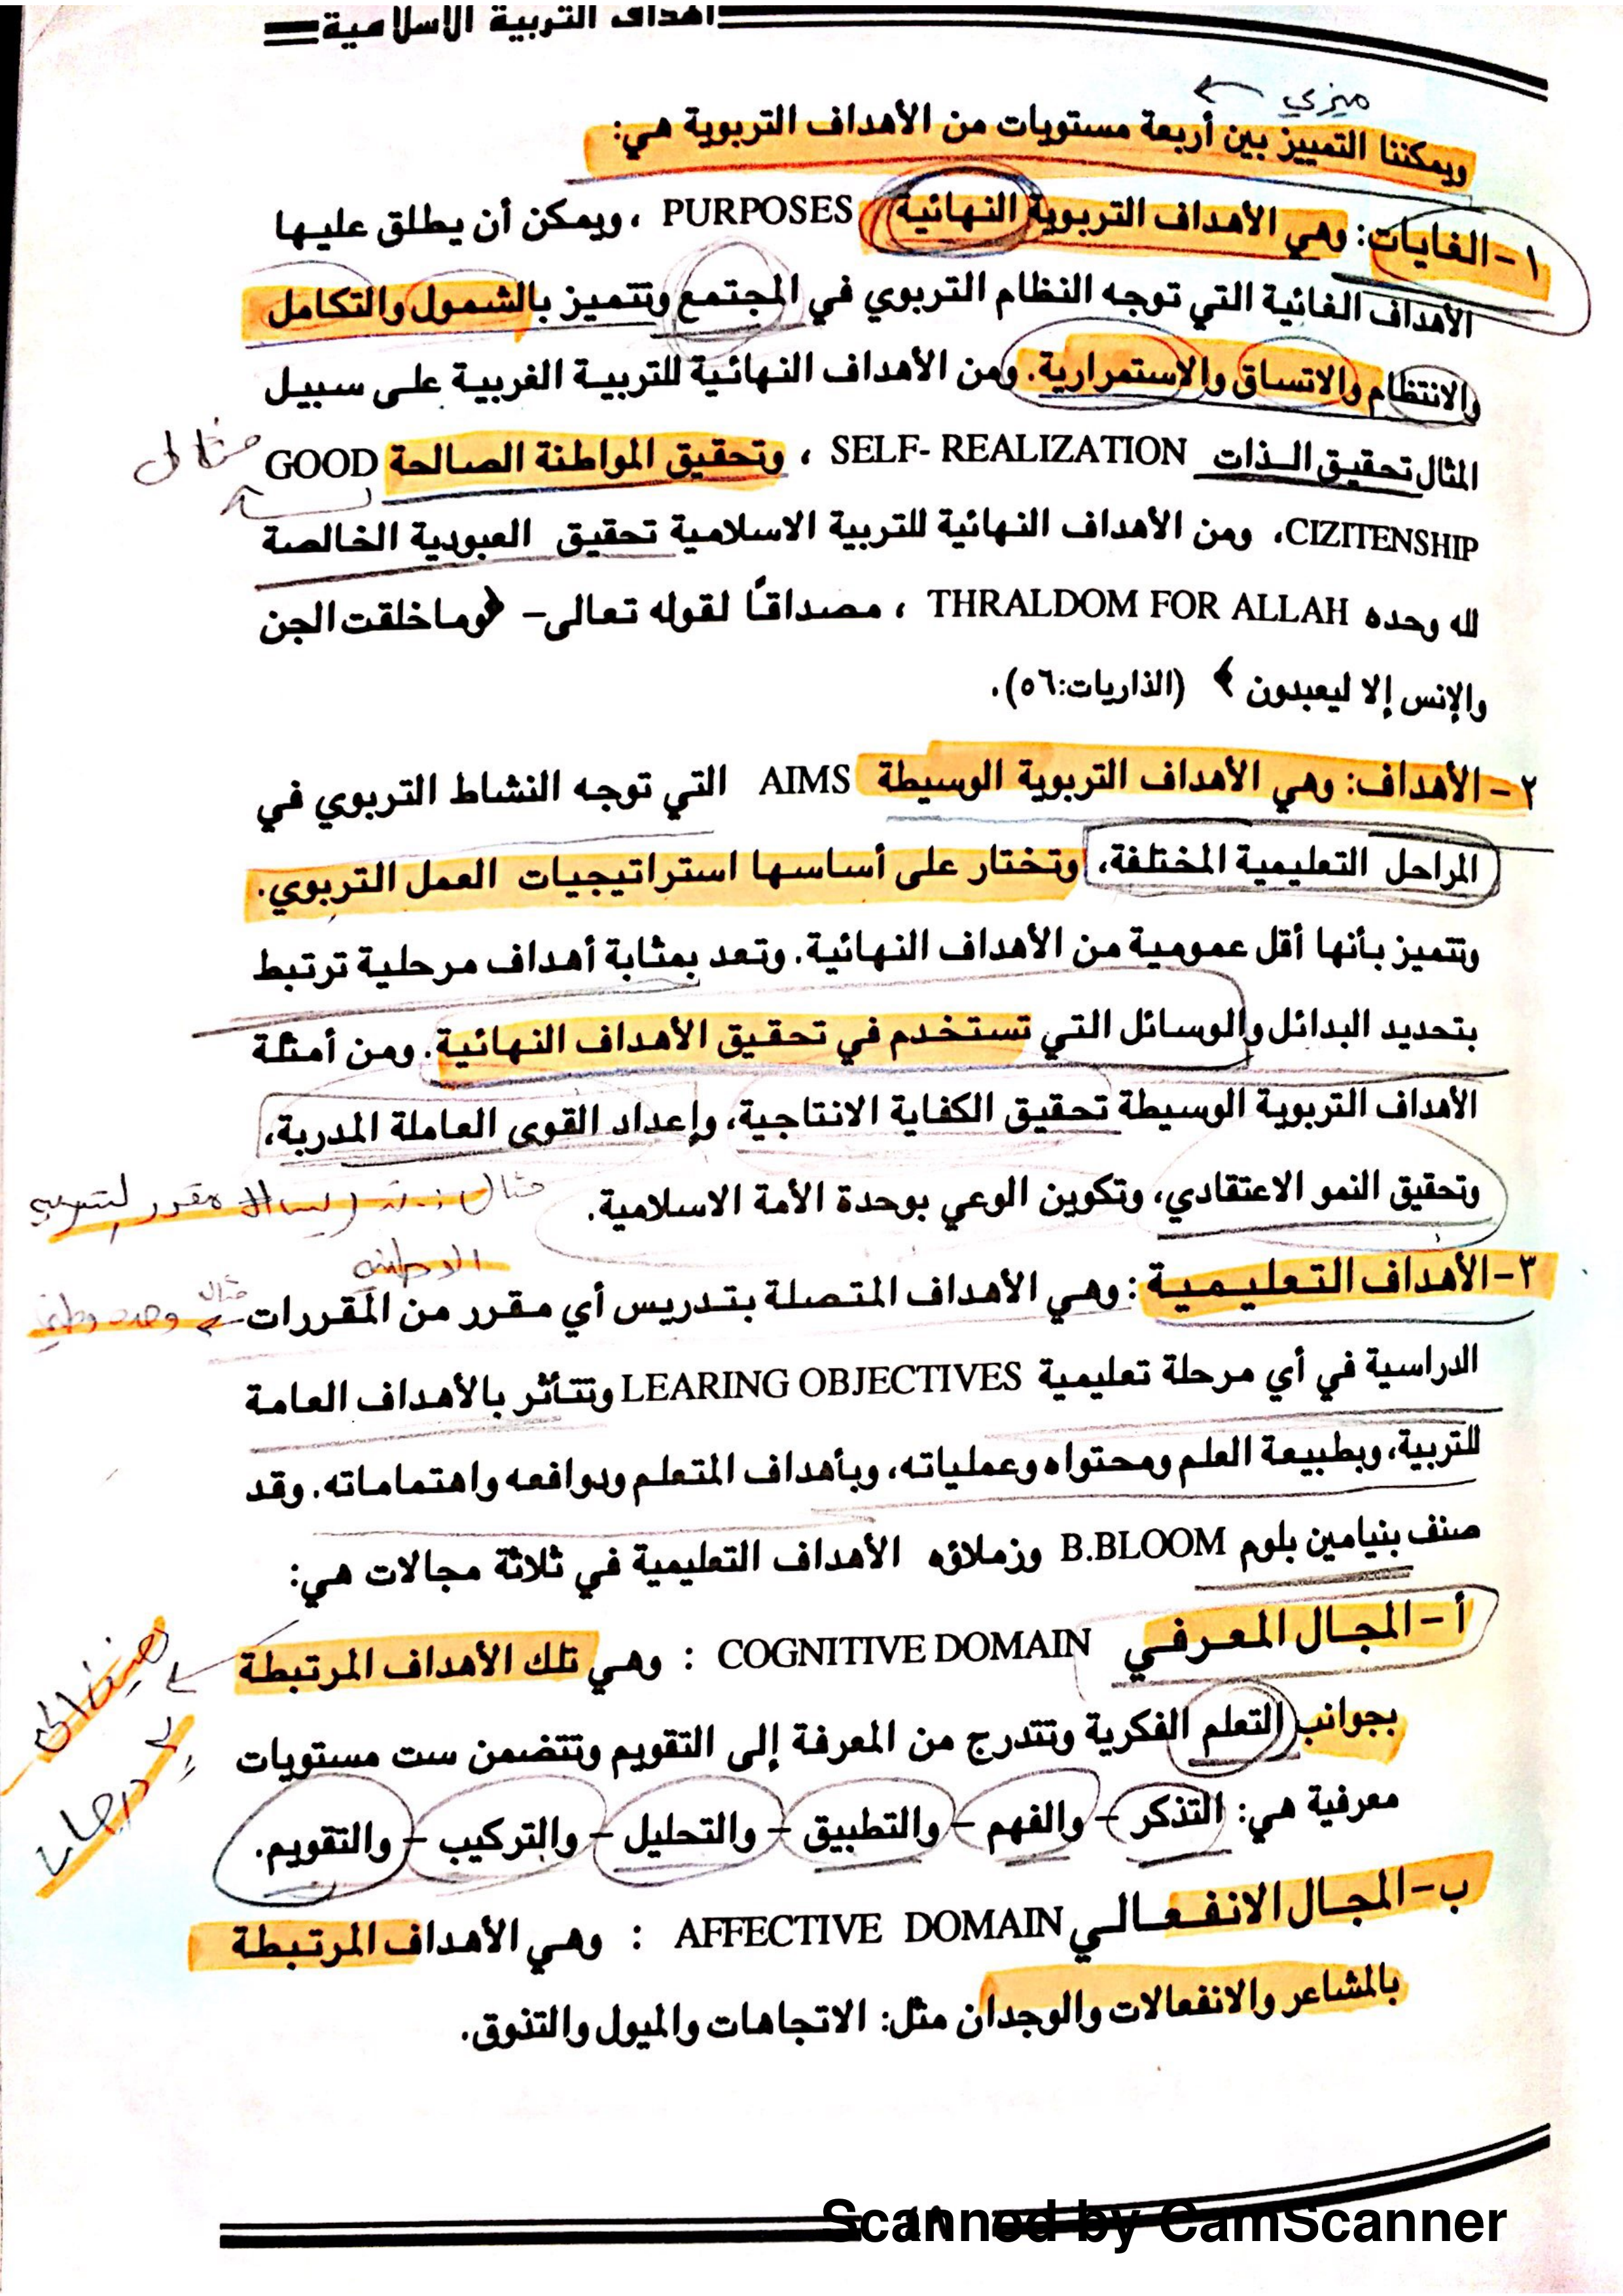 اهداف التربية الاسلامية
ميزي
ويمكننا التمييز بين أربعة مستويات من الأهداف التربوية هي:
١- الغايات: وهي الأهداف التربوية النهائية PURPOSES ، ويمكن أن يطلق عليها
الأهداف الغائية التي توجه النظام التربوي في المجتمع وتتميز بالشمول والتكامل
والانتظام والاتساق والاستمرارية. ومن الأهداف النهائية للتربية الغربية على سبيل
المثال تحقيق الذات SELF- REALIZATION ، وتحقيق المواطنة الصالحة GOOD
مثال
CIZITENSHIP، ومن الأهداف النهائية للتربية الاسلامية تحقيق العبودية الخالصة
لله وحده THRALDOM FOR ALLAH ، مصداقاً لقوله تعالى- ﴿وما خلقت الجن
والإنس إلا ليعبدون ﴾ (الذاريات:٥٦).
٢- الأهداف: وهي الأهداف التربوية الوسيطة AIMS التي توجه النشاط التربوي في
المراحل التعليمية المختلفة، وتختار على أساسها استراتيجيات العمل التربوي.
وتتميز بأنها أقل عمومية من الأهداف النهائية. وتعد بمثابة أهداف مرحلية ترتبط
بتحديد البدائل والوسائل التي تستخدم في تحقيق الأهداف النهائية. ومن أمثلة
الأهداف التربوية الوسيطة تحقيق الكفاية الانتاجية، وإعداد القوى العاملة المدربة،
وتحقيق النمو الاعتقادي، وتكوين الوعي بوحدة الأمة الاسلامية.
مثال مقرر
٣- الأهداف التعليمية : وهي الأهداف المتصلة بتدريس أي مقرر من المقررات
مثال
الدراسية في أي مرحلة تعليمية LEARING OBJECTIVES وتتأثر بالأهداف العامة
للتربية، وبطبيعة العلم ومحتواه وعملياته، وبأهداف المتعلم ودوافعه واهتماماته. وقد
صنف بنيامين بلوم B.BLOOM وزملاؤه الأهداف التعليمية في ثلاثة مجالات هي:
أ- المجال المعرفي COGNITIVE DOMAIN : وهي تلك الأهداف المرتبطة
بجوانب التعلم الفكرية وتتدرج من المعرفة إلى التقويم وتتضمن ست مستويات
معرفية هي: التذكر - والفهم - والتطبيق - والتحليل - والتركيب - والتقويم.
ب- المجال الانفعالي AFFECTIVE DOMAIN : وهي الأهداف المرتبطة
بالمشاعر والانفعالات والوجدان مثل: الاتجاهات والميول والتذوق.
Scanned by CamScanner